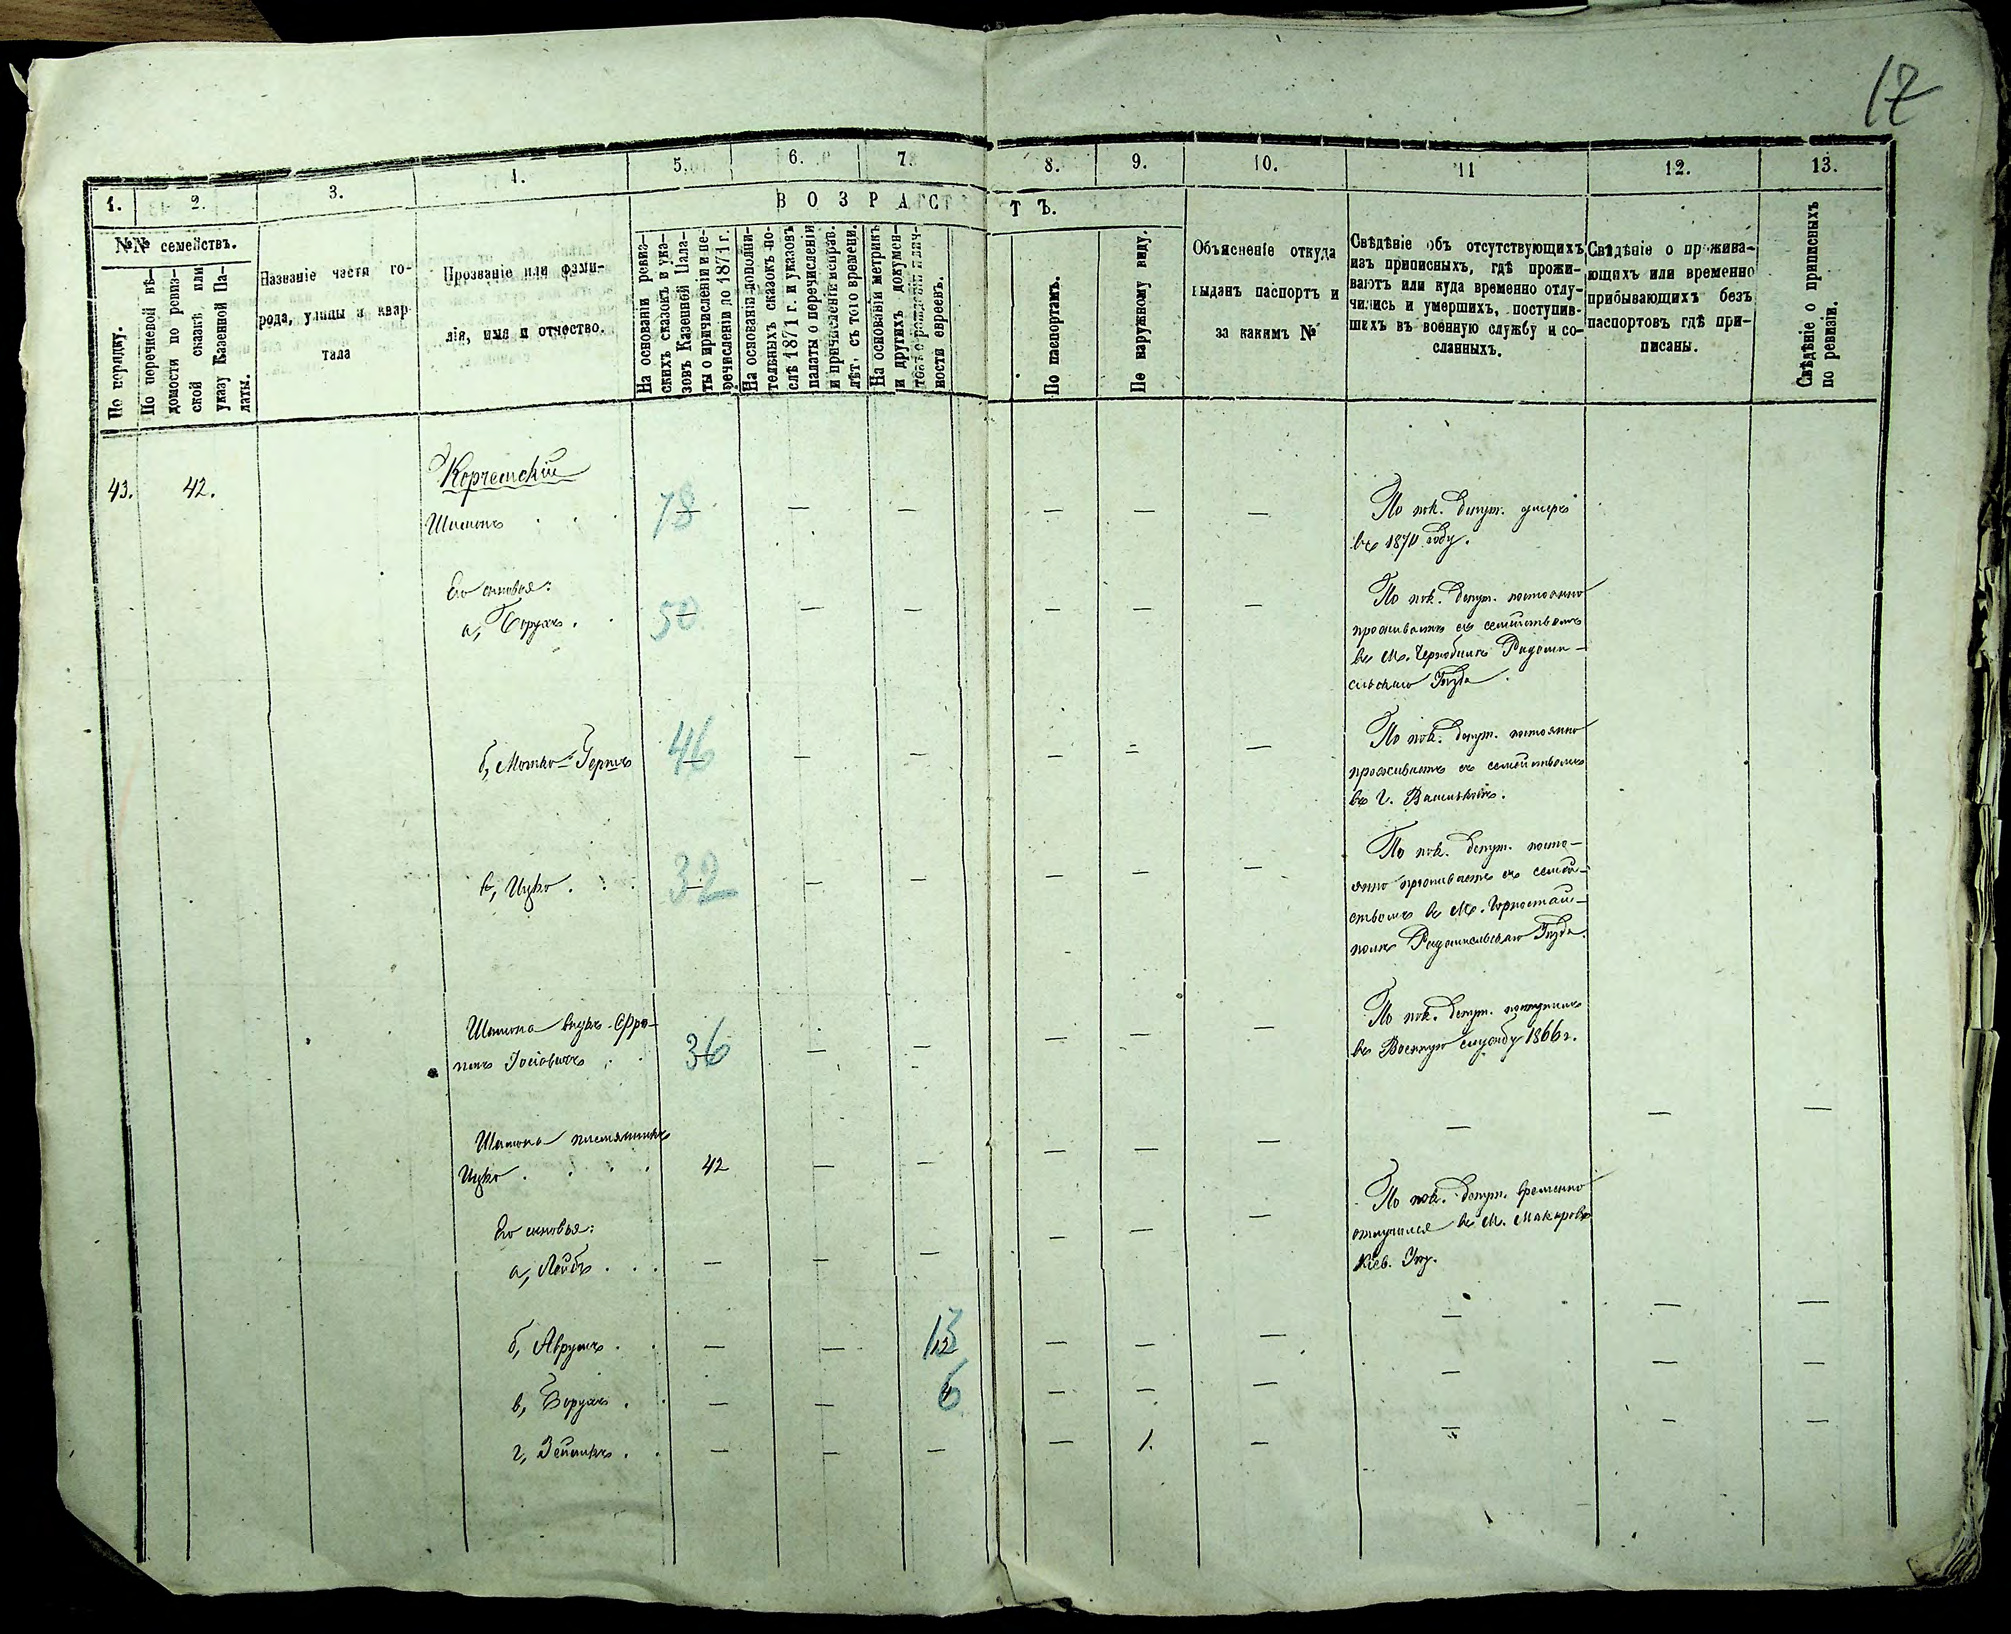 17
1. 2. 3. 4. 5. 6. 7. 8. 9. 10. 11 12. 13.
ВОЗРАСТЪ.
№№ семействъ.
По порядку.
По перечневой вѣ-
домости по ревиз-
ской сказкѣ или
указу Казенной Па-
латы.
Названіе части го-
рода, улицы и квар-
тала
Прозваніе или фами-
лія, имя и отчество.
На основаніи ревиз-
скихъ сказокъ и ука-
зовъ Казенной Пала-
ты о причисленіи и пе-
речисленіи до 1871 г.
На основаніи дополни-
тельныхъ сказокъ по-
слѣ 1871 г. и указовъ
палаты о перечисленіи
и причисленіе исправ.
лѣт. съ того времени.
На основаніи метрикъ
и другихъ докумен-
ности евреевъ.
По паспортамъ.
По наружному виду.
Объясненіе откуда
выданъ паспортъ и
за какимъ №
Свѣдѣніе объ отсутствующихъ
изъ приписныхъ, гдѣ прожи-
ваютъ или куда временно отлу-
чились и умершихъ, поступив-
шихъ въ военную службу и со-
сланныхъ.
Свѣдѣніе о прожива-
ющихъ или временно
прибывающихъ безъ
паспортовъ гдѣ при-
писаны.
Свѣдѣніе о приписныхъ
по ревизіи.
43. 42. Корчемскій
Шимонъ . . . 78 — — — — — По пок. депут. умеръ
въ 1870 году.
Его сыновья:
а, Борухъ . . 50 — — — — — По пок. депут. постоянно
проживаетъ съ семействомъ
въ М. Чернобылѣ Радомы-
сльскаго Уѣзда.
б, Мотко-Герш 46 — — — — — По пок. депут. постоянно
проживаетъ съ семействомъ
въ г. Васильковѣ.
в, Ицко . . . 32 — — — — — По пок. депут. посто-
янно проживаетъ съ семей-
ствомъ въ М. Горностай-
полѣ Радомысльскаго Уѣзда.
Шимона внукъ 36 — — — — — По пок. депут. поступилъ
въ Военную службу 1866 г.
Шимона племянникъ
Ицко . . . . 42 — — — — — — — —
Его сыновья:
а, Лейбъ . . . — — — — — — По пок. депут. временно
отлучился въ М. Макаровъ
Кіев. Уѣз.
б, Аврумъ . . — — 12 13 — — — — — —
в, Борухъ . . — — 6 — — — — — —
г, Зейликъ . . — — — — 1. — — — —